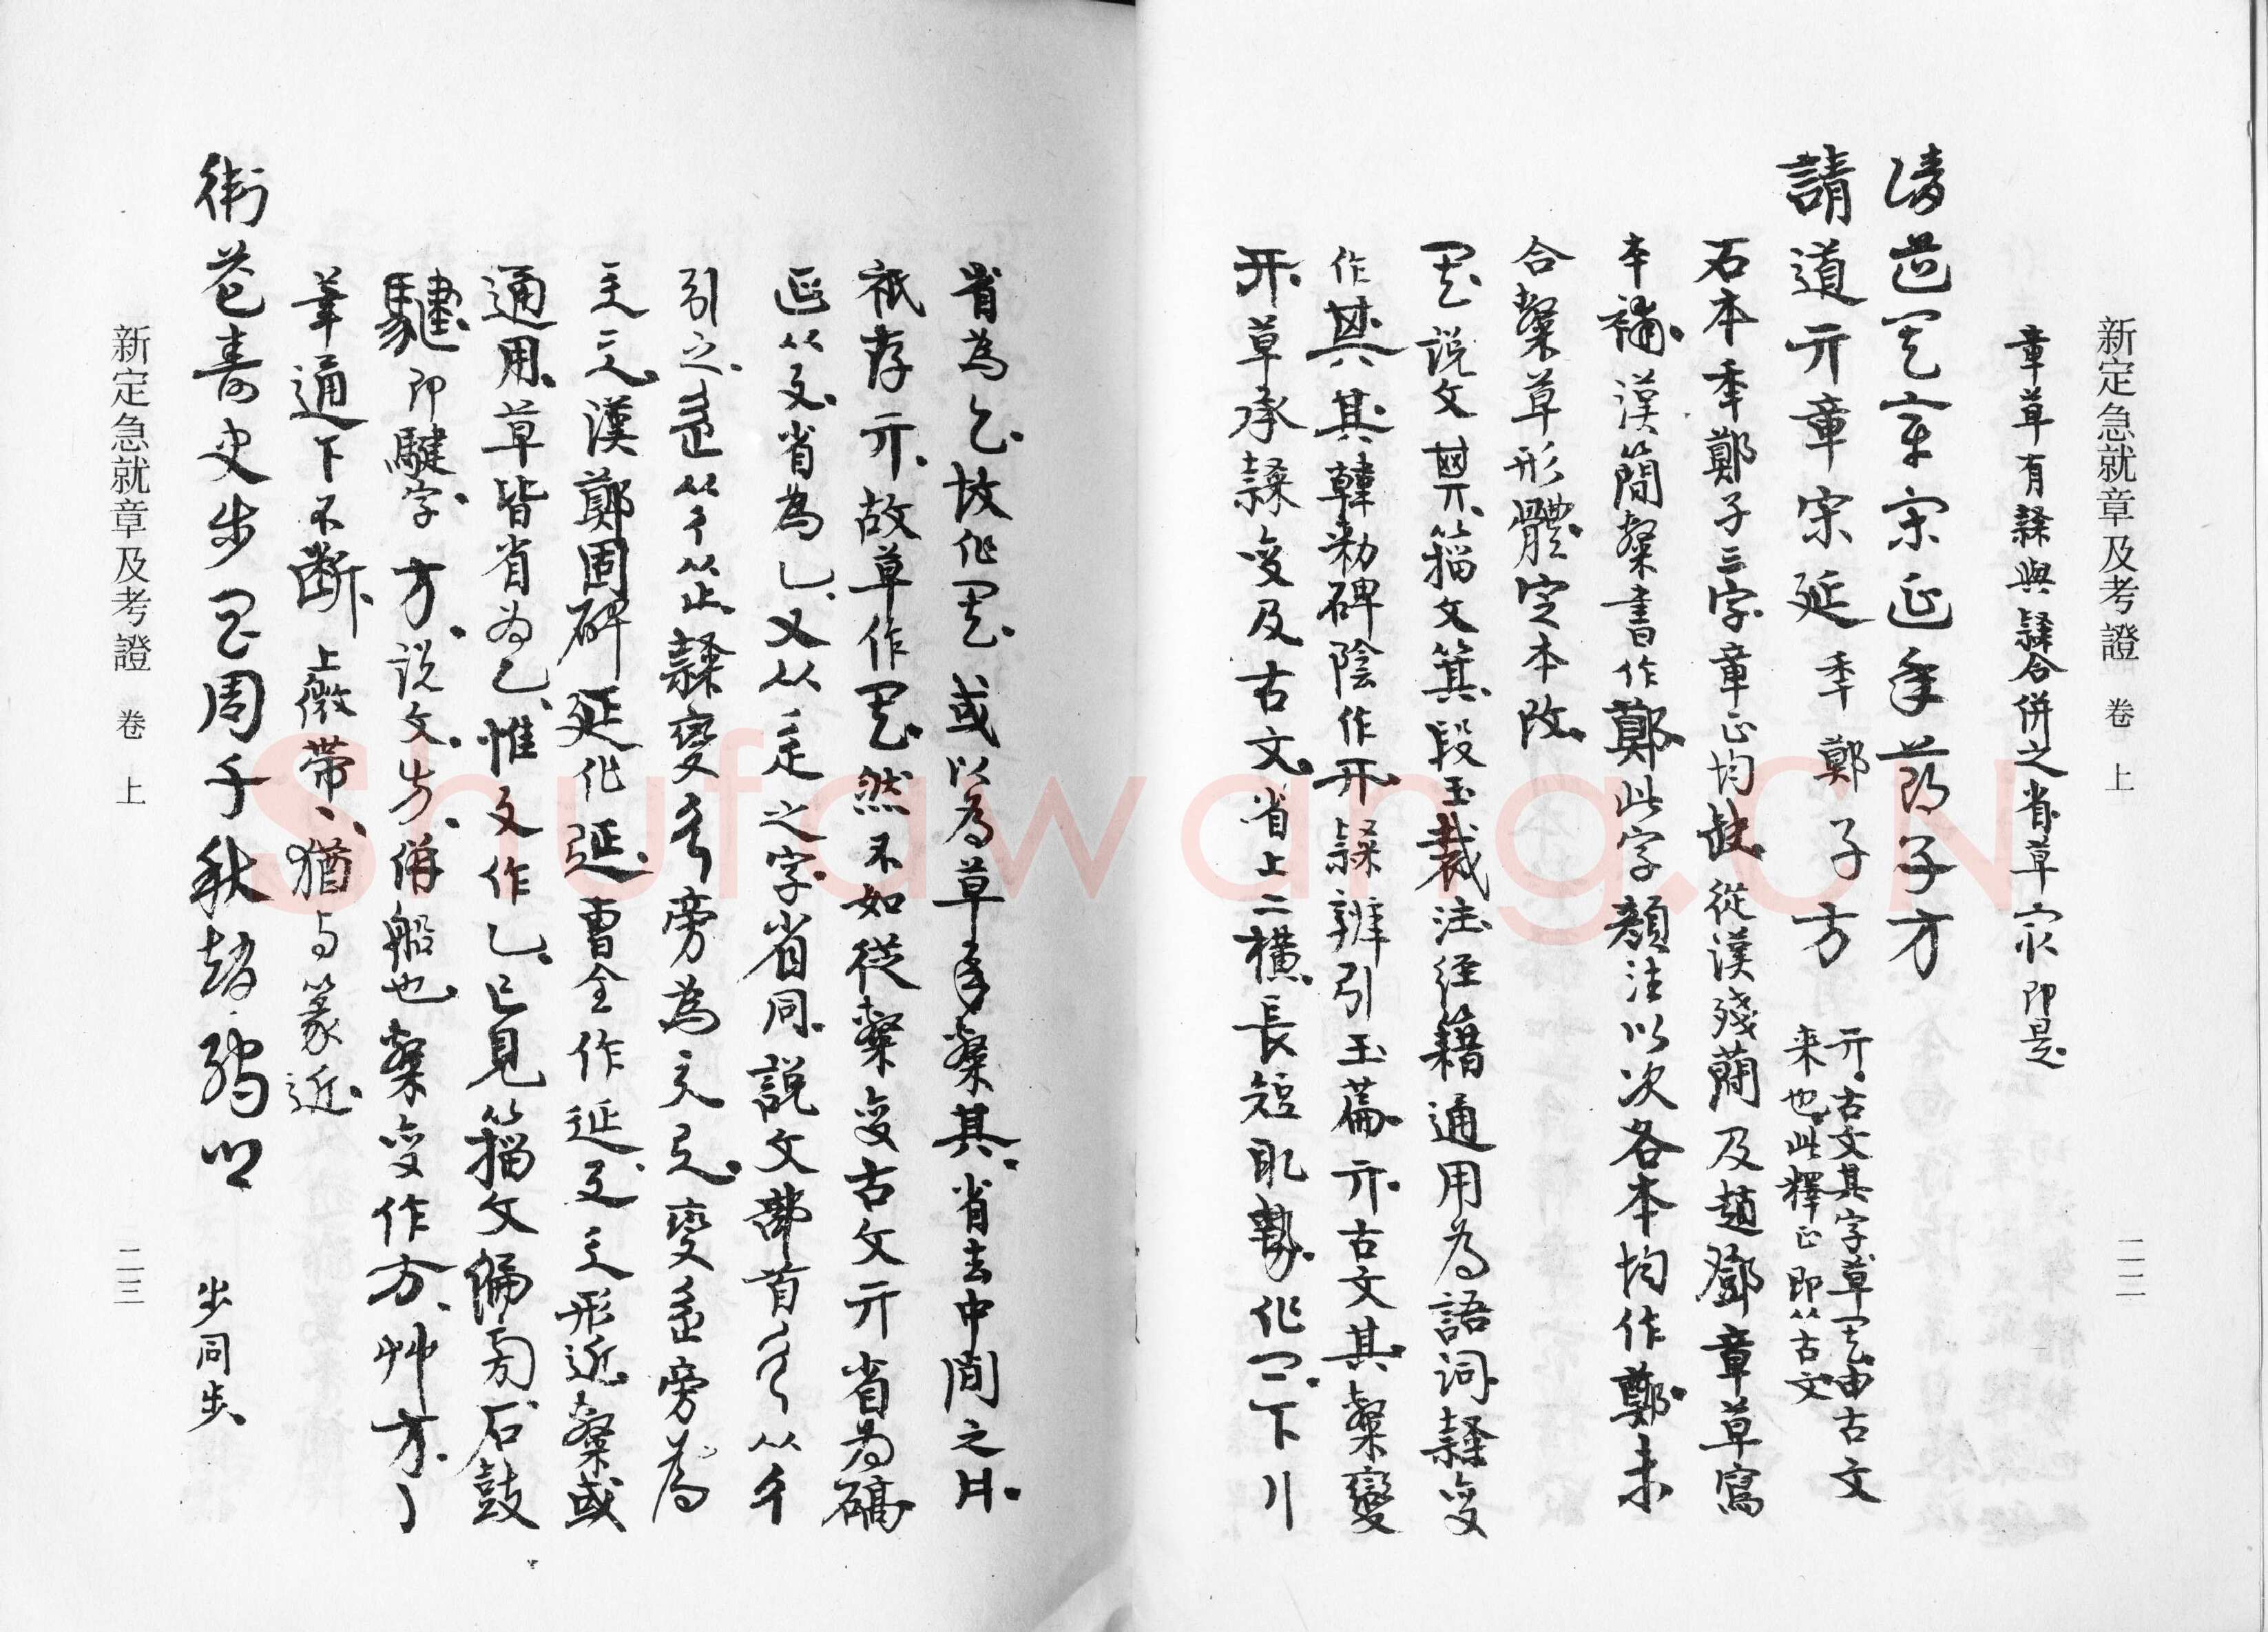 新定急就章及考證 卷上 二二
章草有隸與隸合併之省草宋即是
請道章宋延年鄭子方
請道亓章宋延年鄭子方 亓古文其字草由古文
来也此釋正即从古文
石本年鄭子三字章正均缺從漢殘簡及趙鄧章草寫
本補漢簡楷書作鄭此字顏注以次各本均作鄭未
合楷草形體定本改
說文籀文箕段玉裁注經籍通用為語詞隸變
作其其韓勑碑陰作亓隸辨引玉篇亓古文其楷變
亓草承隸變及古文省上二橫長短取勢作下
省為故作或以為草年楷其省去中間之
祇存亓故草作然不如從楷變古文亓省為礄
延从省為又从之字省同說文部首从
引之从从止隸變旁為變旁為
漢鄭固碑延作延曹全作延形近楷或
通用草皆省為惟文作已見籀文偏旁石鼓
即騝字方說文方併船也楷變作方艸方
筆通下不斷上微帶猶与篆近
衛益壽史步昌周千秋趙孺卿 步同步
新定急就章及考證 卷上 二三
Shufawang.CN